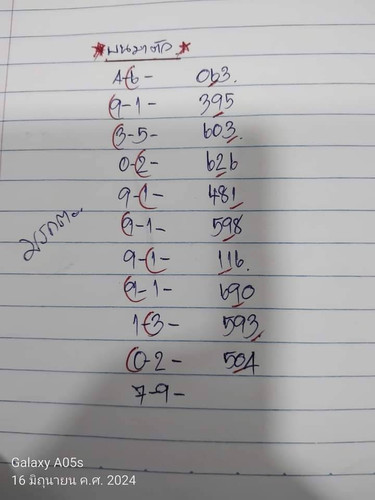 4-6- 063.
9-1- 395
3-5- 603.
0-2- 626
9-1- 481
9-1- 598
9-1- 116.
9-1- 690
1-3- 593
0-2- 504
7-9-
มรดก
Galaxy A05s
16 มิถุนายน ค.ศ. 2024